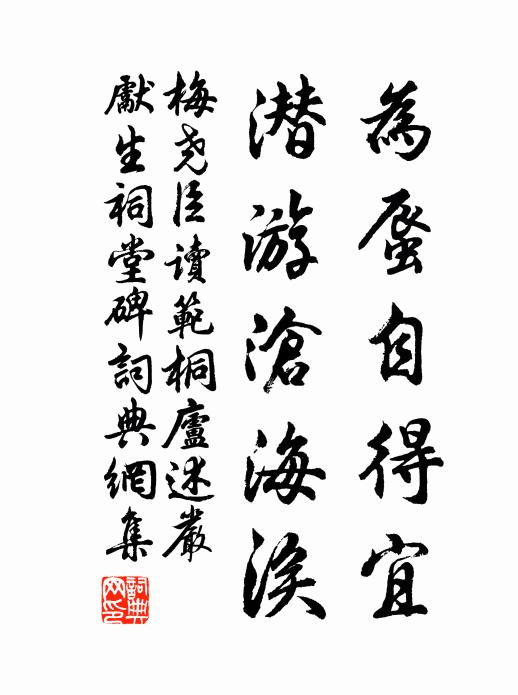 為蜃自得宜
潜游滄海涘
梅尧臣讀範桐廬述嚴
獻生祠堂碑詞典網集
詞典网印